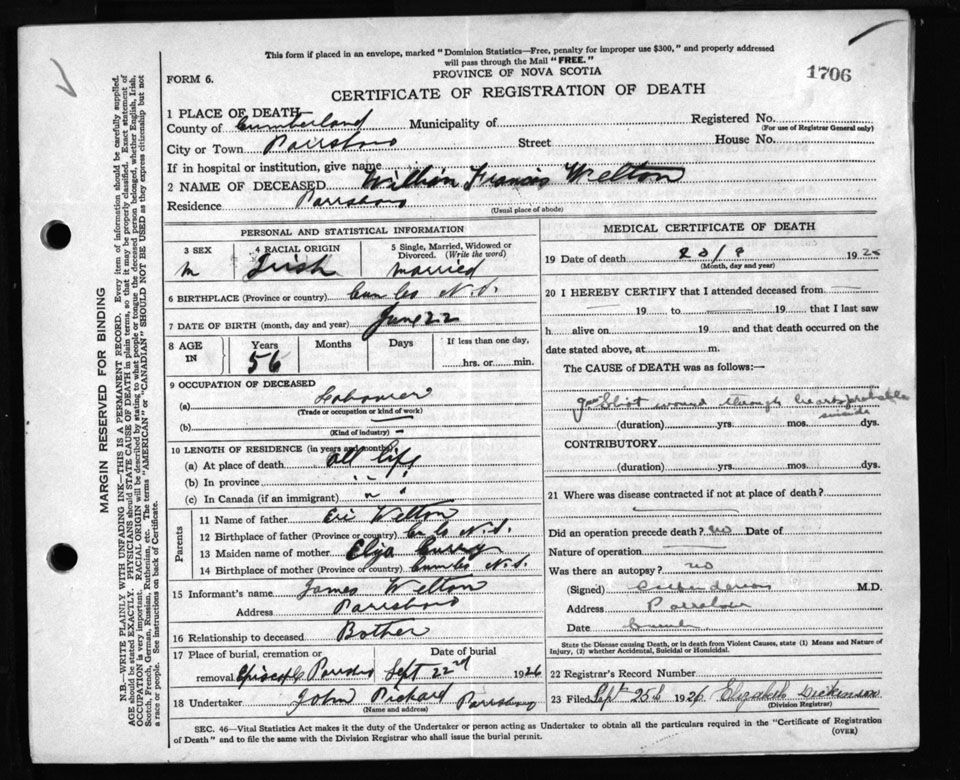 This form if placed in an envelope, marked "Dominion Statistics—Free, penalty for improper use $300," and properly addressed
will pass through the Mail "FREE."
PROVINCE OF NOVA SCOTIA
1706
FORM 6.
CERTIFICATE OF REGISTRATION OF DEATH
MARGIN RESERVED FOR BINDING
N.B.—WRITE PLAINLY WITH UNFADING INK—THIS IS A PERMANENT RECORD. Every item of information should be carefully supplied.
AGE should be stated EXACTLY. PHYSICIANS should STATE CAUSE OF DEATH in plain terms, so that it may be properly classified. Exact statement of
OCCUPATION is very important. RACIAL ORIGIN will be described by stating to what people or tongue the deceased person belonged, whether English, Irish,
Scotch, French, German, Russian, Ruthenian, etc. The terms "AMERICAN" or "CANADIAN" SHOULD NOT BE USED as they express citizenship but not
a race or people. See instructions on back of Certificate.
1 PLACE OF DEATH
County of Cumberland Municipality of Registered No.
(For use of Registrar General only)
City or Town Parrsboro Street House No.
If in hospital or institution, give name
2 NAME OF DECEASED William Francis Welton
Residence Parrsboro
(Usual place of abode)
PERSONAL AND STATISTICAL INFORMATION
3 SEX M
4 RACIAL ORIGIN Irish
5 Single, Married, Widowed or Divorced. (Write the word) Married
6 BIRTHPLACE (Province or country) Cum Co N.S.
7 DATE OF BIRTH (month, day and year) June 22
8 AGE IN Years 56 Months Days If less than one day, hrs. or min.
9 OCCUPATION OF DECEASED
(a) Labourer
(Trade or occupation or kind of work)
(b)
(Kind of industry)
10 LENGTH OF RESIDENCE (in years and months)
(a) At place of death All Life
(b) In province " "
(c) In Canada (if an immigrant) " "
Parents
11 Name of father Welton
12 Birthplace of father (Province or country) N.S.
13 Maiden name of mother Eliza
14 Birthplace of mother (Province or country) N.S.
15 Informant's name James Welton
Address Parrsboro
16 Relationship to deceased Bother
17 Place of burial, cremation or removal
Date of burial Sept 22nd 1926
18 Undertaker John Richard Parrsboro
(Name and address)
MEDICAL CERTIFICATE OF DEATH
19 Date of death 192
(Month, day and year)
20 I HEREBY CERTIFY that I attended deceased from
19 to 19 that I last saw
h alive on 19 and that death occurred on the
date stated above, at m.
The CAUSE OF DEATH was as follows:—
Gun Shot wound through heart probable
suicide
(duration) yrs. mos. dys.
CONTRIBUTORY
(duration) yrs. mos. dys.
21 Where was disease contracted if not at place of death?
Did an operation precede death? no Date of
Nature of operation
Was there an autopsy? no
(Signed) M.D.
Address Parrsboro
Date
State the Disease causing Death, or in death from Violent Causes, state (1) Means and Nature of
Injury, (2) whether Accidental, Suicidal or Homicidal.
22 Registrar's Record Number
23 Filed Sept 25th 1926 Elizabeth Dickinson
(Division Registrar)
SEC. 46—Vital Statistics Act makes it the duty of the Undertaker or person acting as Undertaker to obtain all the particulars required in the "Certificate of Registration
of Death" and to file the same with the Division Registrar who shall issue the burial permit.
(OVER)